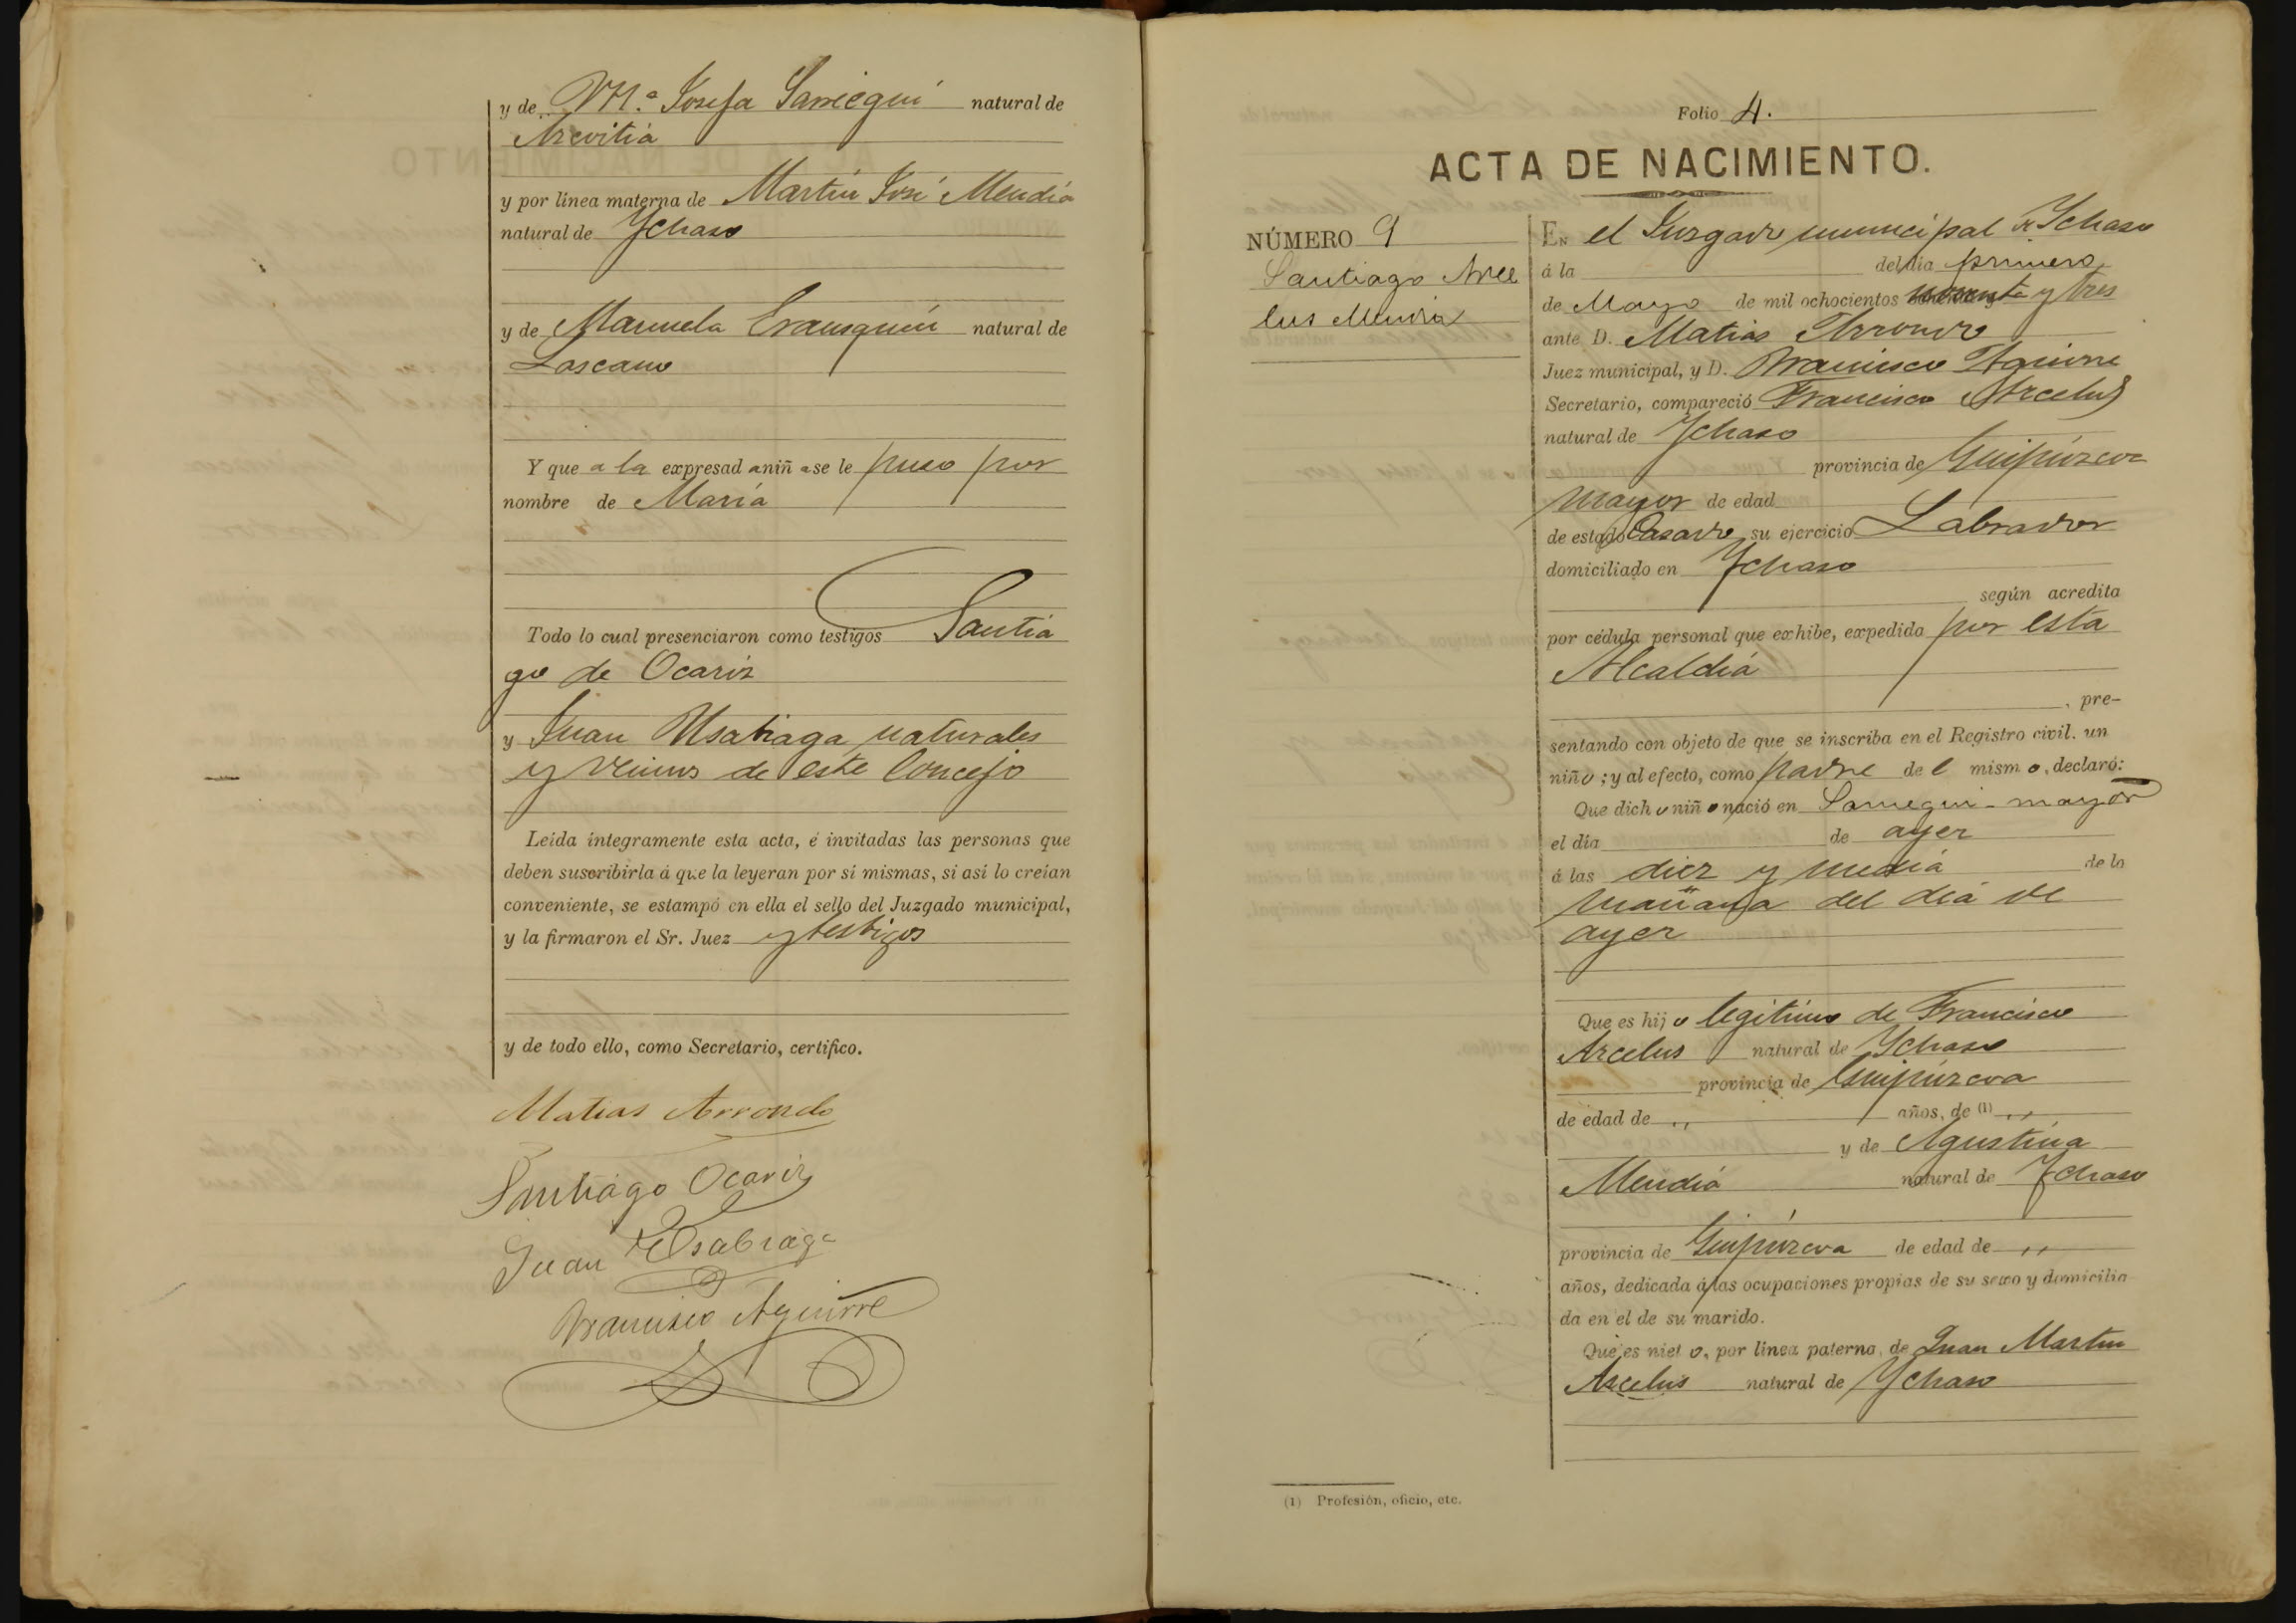 y de M.ª Josefa Sarriegui natural de
Arevitia
y por linea materna de Martin José Mendia
natural de Ychaso
y de Manuela Erausquin natural de
Lascano
Y que a la expresad a niñ a se le puso por
nombre de Maria
Todo lo cual presenciaron como testigos Santia
go de Ocariz
y Juan Usabiaga naturales
y vecinos de este Concejo
Leída íntegramente esta acta, é invitadas las personas que
deben suscribirla á que la leyeran por sí mismas, si así lo creían
conveniente, se estampó en ella el sello del Juzgado municipal,
y la firmaron el Sr. Juez y testigos
y de todo ello, como Secretario, certifico.
Matias Arrondo
Santiago Ocariz
Juan Usabiaga
Francisco Aguirre
Folio 4.
ACTA DE NACIMIENTO.
NÚMERO 9
Santiago Arce
lus Mendia
EN el Juzgado municipal de Ychaso
á la del día primero
de Mayo de mil ochocientos noventa y tres
ante D. Matias Arrondo
Juez municipal, y D. Francisco Aguirre
Secretario, compareció Francisco Arcelus
natural de Ychaso
provincia de Guipúzcoa
mayor de edad
de estado Casado su ejercicio Labrador
domiciliado en Ychaso
según acredita
por cédula personal que exhibe, expedida por esta
Alcaldia
, pre-
sentando con objeto de que se inscriba en el Registro civil. un
niño; y al efecto, como padre de l mism o, declaró:
Que dich o niñ o nació en Sarriegui-mayor
el día de ayer
á las diez y media de la
mañana del dia de
ayer
Que es hij o legitimo de Francisco
Arcelus natural de Ychaso
provincia de Guipúzcoa
de edad de ,, años, de (1) ,,
y de Agustina
Mendia natural de Ychaso
provincia de Guipúzcoa de edad de ,,
años, dedicada á las ocupaciones propias de su sexo y domicilia
da en el de su marido.
Que es niet o, por linea paterna, de Juan Martin
Arcelus natural de Ychaso
(1) Profesión, oficio, etc.